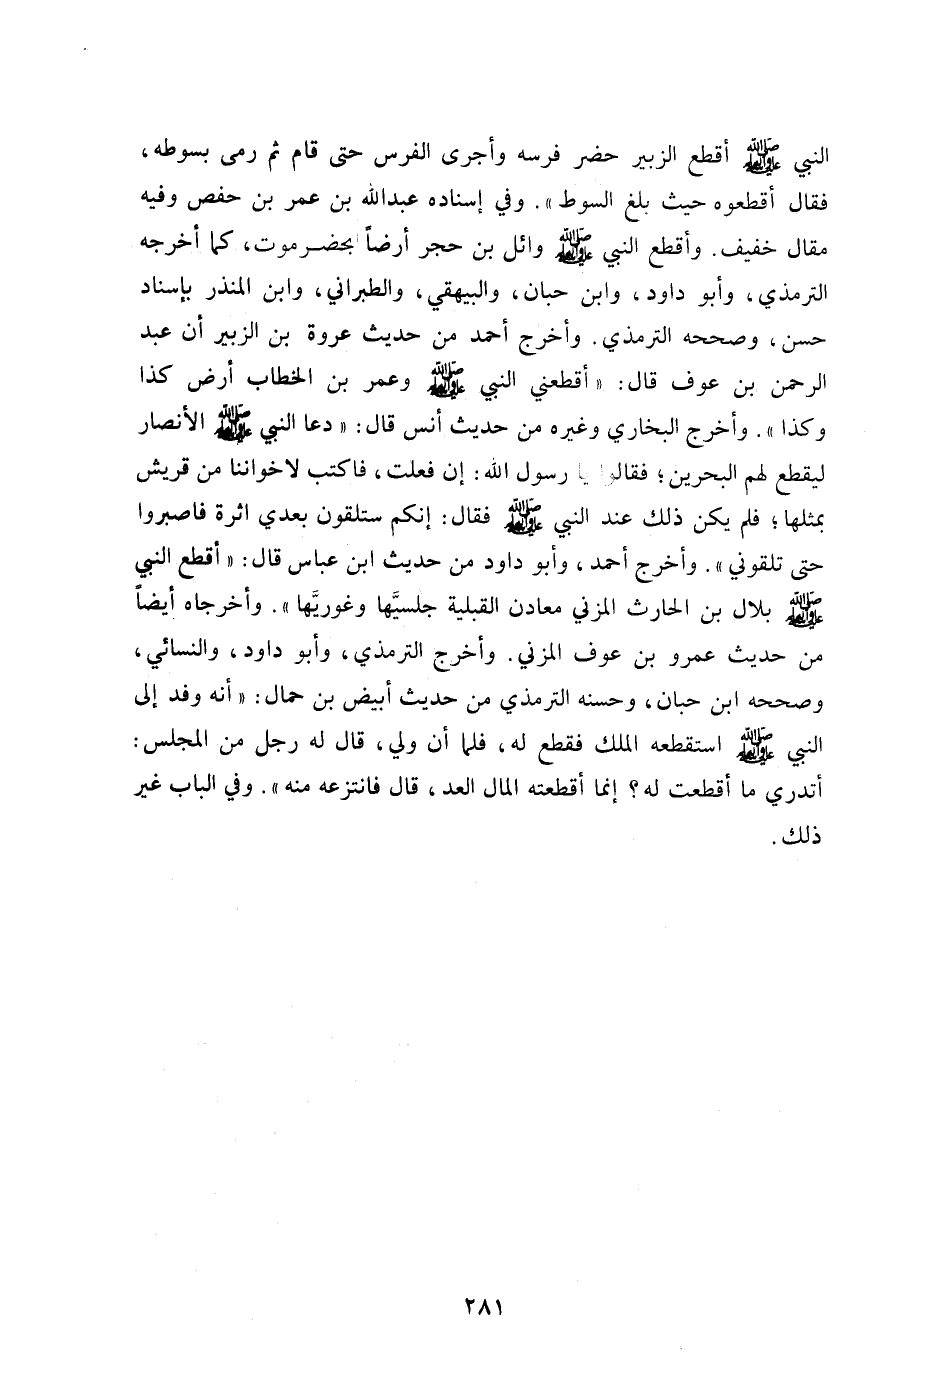 النبي ﷺ أقطع الزبير حضر فرسه وأجرى الفرس حتى قام ثم رمى بسوطه،
فقال أقطعوه حيث بلغ السوط». وفي إسناده عبدالله بن عمر بن حفص وفيه
مقال خفيف. وأقطع النبي ﷺ وائل بن حجر أرضاً بحضرموت، كما أخرجه
الترمذي، وأبو داود، وابن حبان، والبيهقي، والطبراني، وابن المنذر بإسناد
حسن، وصححه الترمذي. وأخرج أحمد من حديث عروة بن الزبير أن عبد
الرحمن بن عوف قال: «أقطعني النبي ﷺ وعمر بن الخطاب أرض كذا
وكذا». وأخرج البخاري وغيره من حديث أنس قال: «دعا النبي ﷺ الأنصار
ليقطع لهم البحرين؛ فقالوا يا رسول الله: إن فعلت، فاكتب لاخواننا من قريش
بمثلها؛ فلم يكن ذلك عند النبي ﷺ فقال: إنكم ستلقون بعدي اثرة فاصبروا
حتى تلقوني». وأخرج أحمد، وأبو داود من حديث ابن عباس قال: «أقطع النبي
ﷺ بلال بن الحارث المزني معادن القبلية جلسيَّها وغوريَّها». وأخرجاه أيضاً
من حديث عمرو بن عوف المزني. وأخرج الترمذي، وأبو داود، والنسائي،
وصححه ابن حبان، وحسنه الترمذي من حديث أبيض بن حمال: «أنه وفد إلى
النبي ﷺ استقطعه الملك فقطع له، فلما أن ولي، قال له رجل من المجلس:
أتدري ما أقطعت له؟ إنما أقطعته المال العد، قال فانتزعه منه». وفي الباب غير
ذلك.
٢٨١